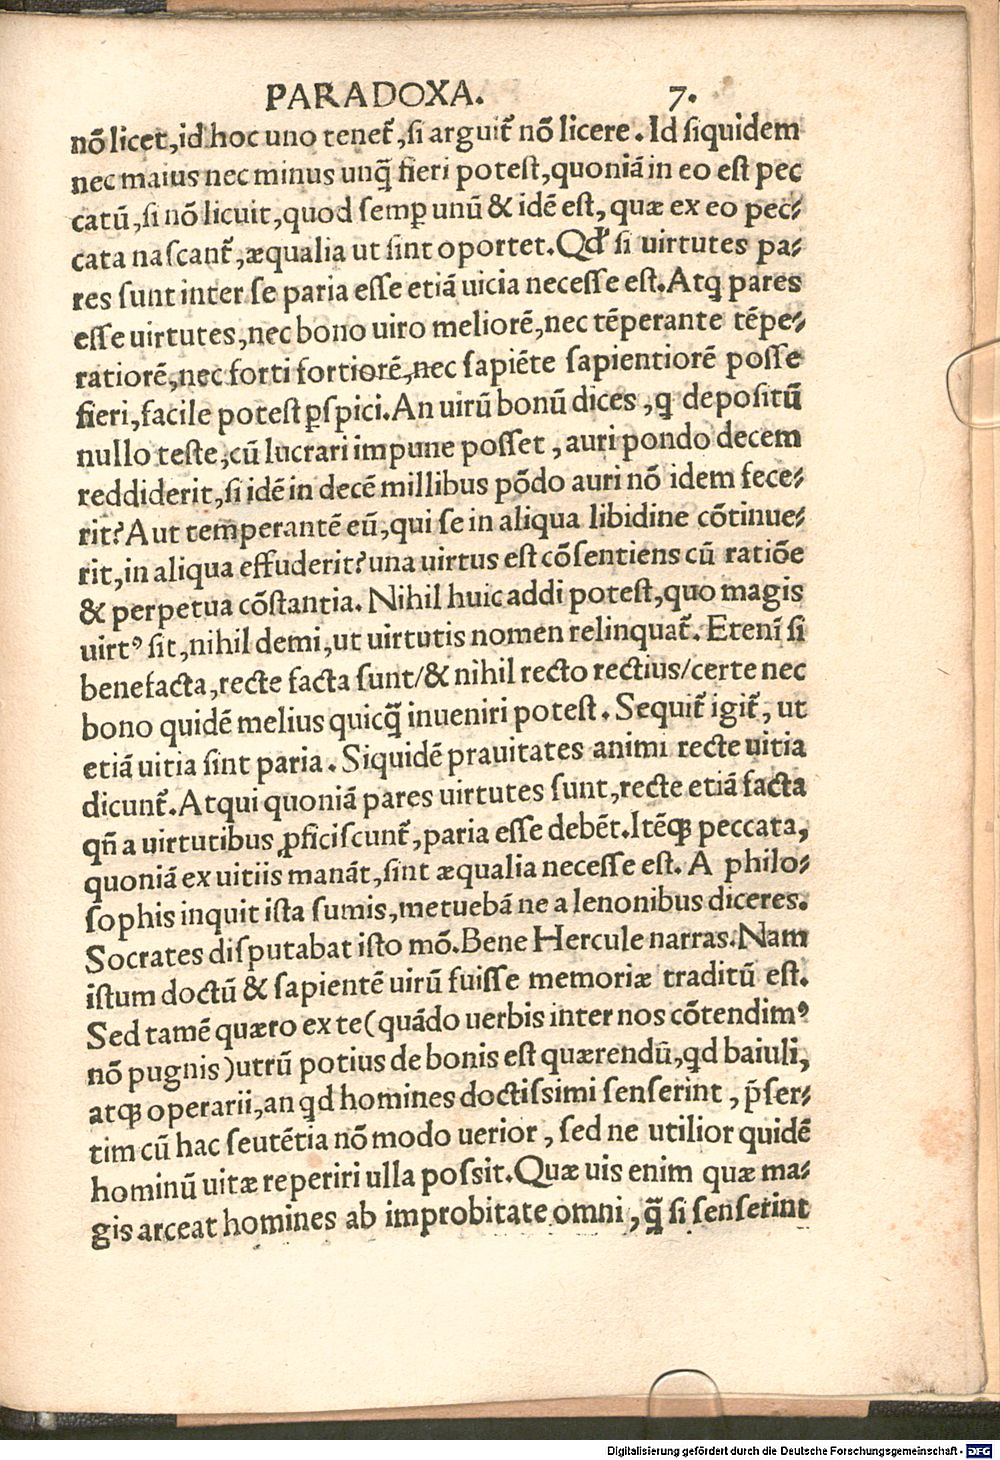 PARADOXA. 7.
nõ licet,id hoc uno tenet᷑,si arguit᷑ nõ licere. Id siquidem
nec maius nec minus unq̃ fieri potest,quoniã in eo est pec
catũ,si nõ licuit,quod semꝑ unũ & idẽ est, quæ ex eo pec⸗
cata nascant᷑,æqualia ut sint oportet.Qd̛ si uirtutes pa⸗
res sunt inter se paria esse etiã uicia necesse est.Atq; pares
esse uirtutes,nec bono uiro meliorẽ,nec tẽperante tẽpe⸗
ratiorẽ,nec forti fortiorẽ,nec sapiẽte sapientiorẽ posse
fieri,facile potest ꝑspici.An uirũ bonũ dices ,q depositũ
nullo teste,cũ lucrari impune posset ,auri pondo decem
reddiderit,si idẽ in decẽ millibus põdo auri nõ idem fece⸗
rit?Aut temperantẽ eũ,qui se in aliqua libidine cõtinue⸗
rit,in aliqua effuderit?una uirtus est cõsentiens cũ ratiõe
& perpetua cõstantia. Nihil huic addi potest,quo magis
uirtꝰ sit,nihil demi,ut uirtutis nomen relinquat᷑. Etenĩ si
benefacta,recte facta sunt/& nihil recto rectius/certe nec
bono quidẽ melius quicq̃ inueniri potest. Sequit᷑ igit᷑, ut
etiã uitia sint paria. Siquidẽ prauitates animi recte uitia
dicunt᷑.Atqui quoniã pares uirtutes sunt,recte etiã facta
qñ a uirtutibus ꝓficiscunt᷑,paria esse debẽt.Itẽq; peccata,
quoniã ex uitiis manãt,sint æqualia necesse est. A philo⸗
sophis inquit ista sumis,metuebã ne a lenonibus diceres.
Socrates disputabat isto mõ.Bene Hercule narras.Nam
istum doctũ & sapientẽ uirũ fuisse memoriæ traditũ est.
Sed tamẽ quæro ex te(quãdo uerbis inter nos cõtendimꝰ
nõ pugnis)utrũ potius de bonis est quærendũ,qd baiuli,
atq; operarii,an qd homines doctissimi senserint ,p̃ser⸗
tim cũ hac seutẽtia nõ modo uerior , sed ne utilior quidẽ
hominũ uitæ reperiri ulla possit.Quæ uis enim quæ ma⸗
gis arceat homines ab improbitate omni ,q̃ si senserint
Digitalisierung gefördert durch die Deutsche Forschungsgemeinschaft - DFG